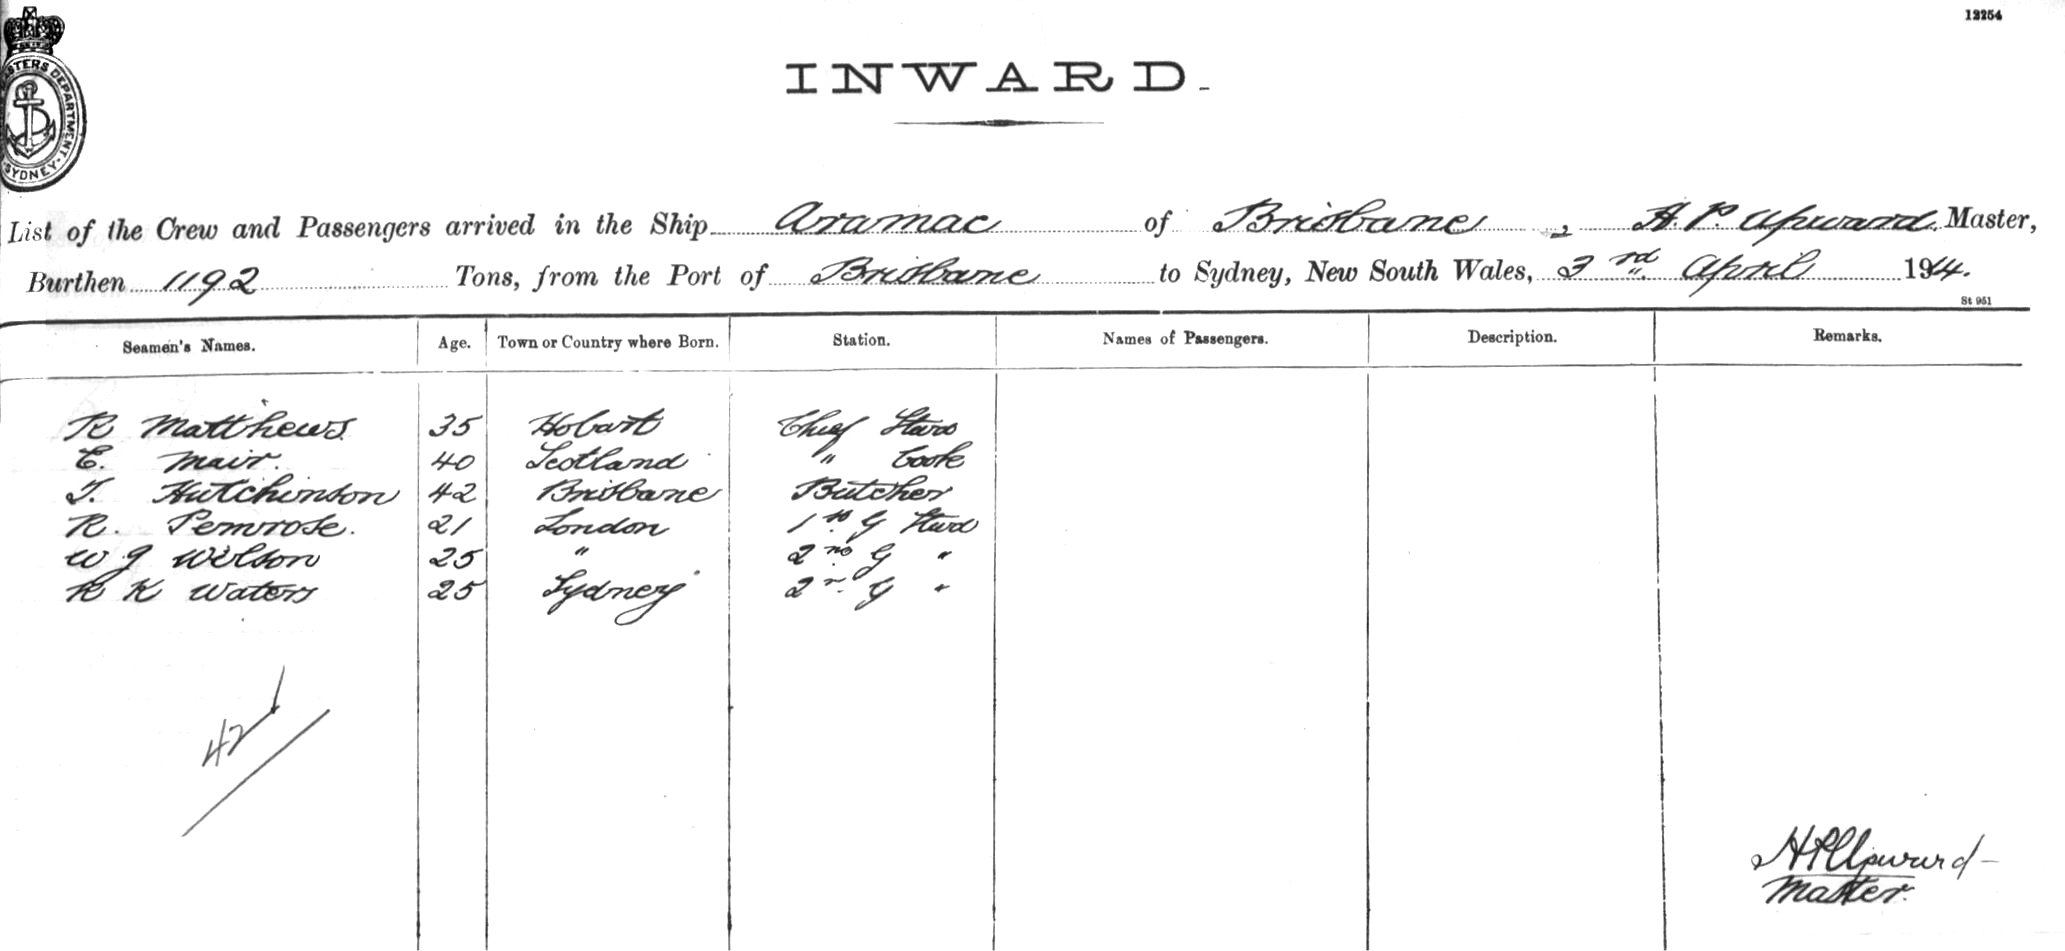 12254
STERS DEPARTMENT. SYDNEY
INWARD.
List of the Crew and Passengers arrived in the Ship Aramac of Brisbane, H. P. Upward Master,
Burthen 1192 Tons, from the Port of Brisbane to Sydney, New South Wales, 3rd April 1914.
St 951
Seamen's Names. Age. Town or Country where Born. Station. Names of Passengers. Description. Remarks.
R Matthews 35 Hobart Chief Stwd
E. Mair. 40 Scotland " Cook
T. Hutchinson 42 Brisbane Butcher
R. Pemrose. 21 London 1st G Stwd
W G Wilson 25 " 2nd G "
R K Waters 25 Sydney 2n G "
42
H P Upward
Master.